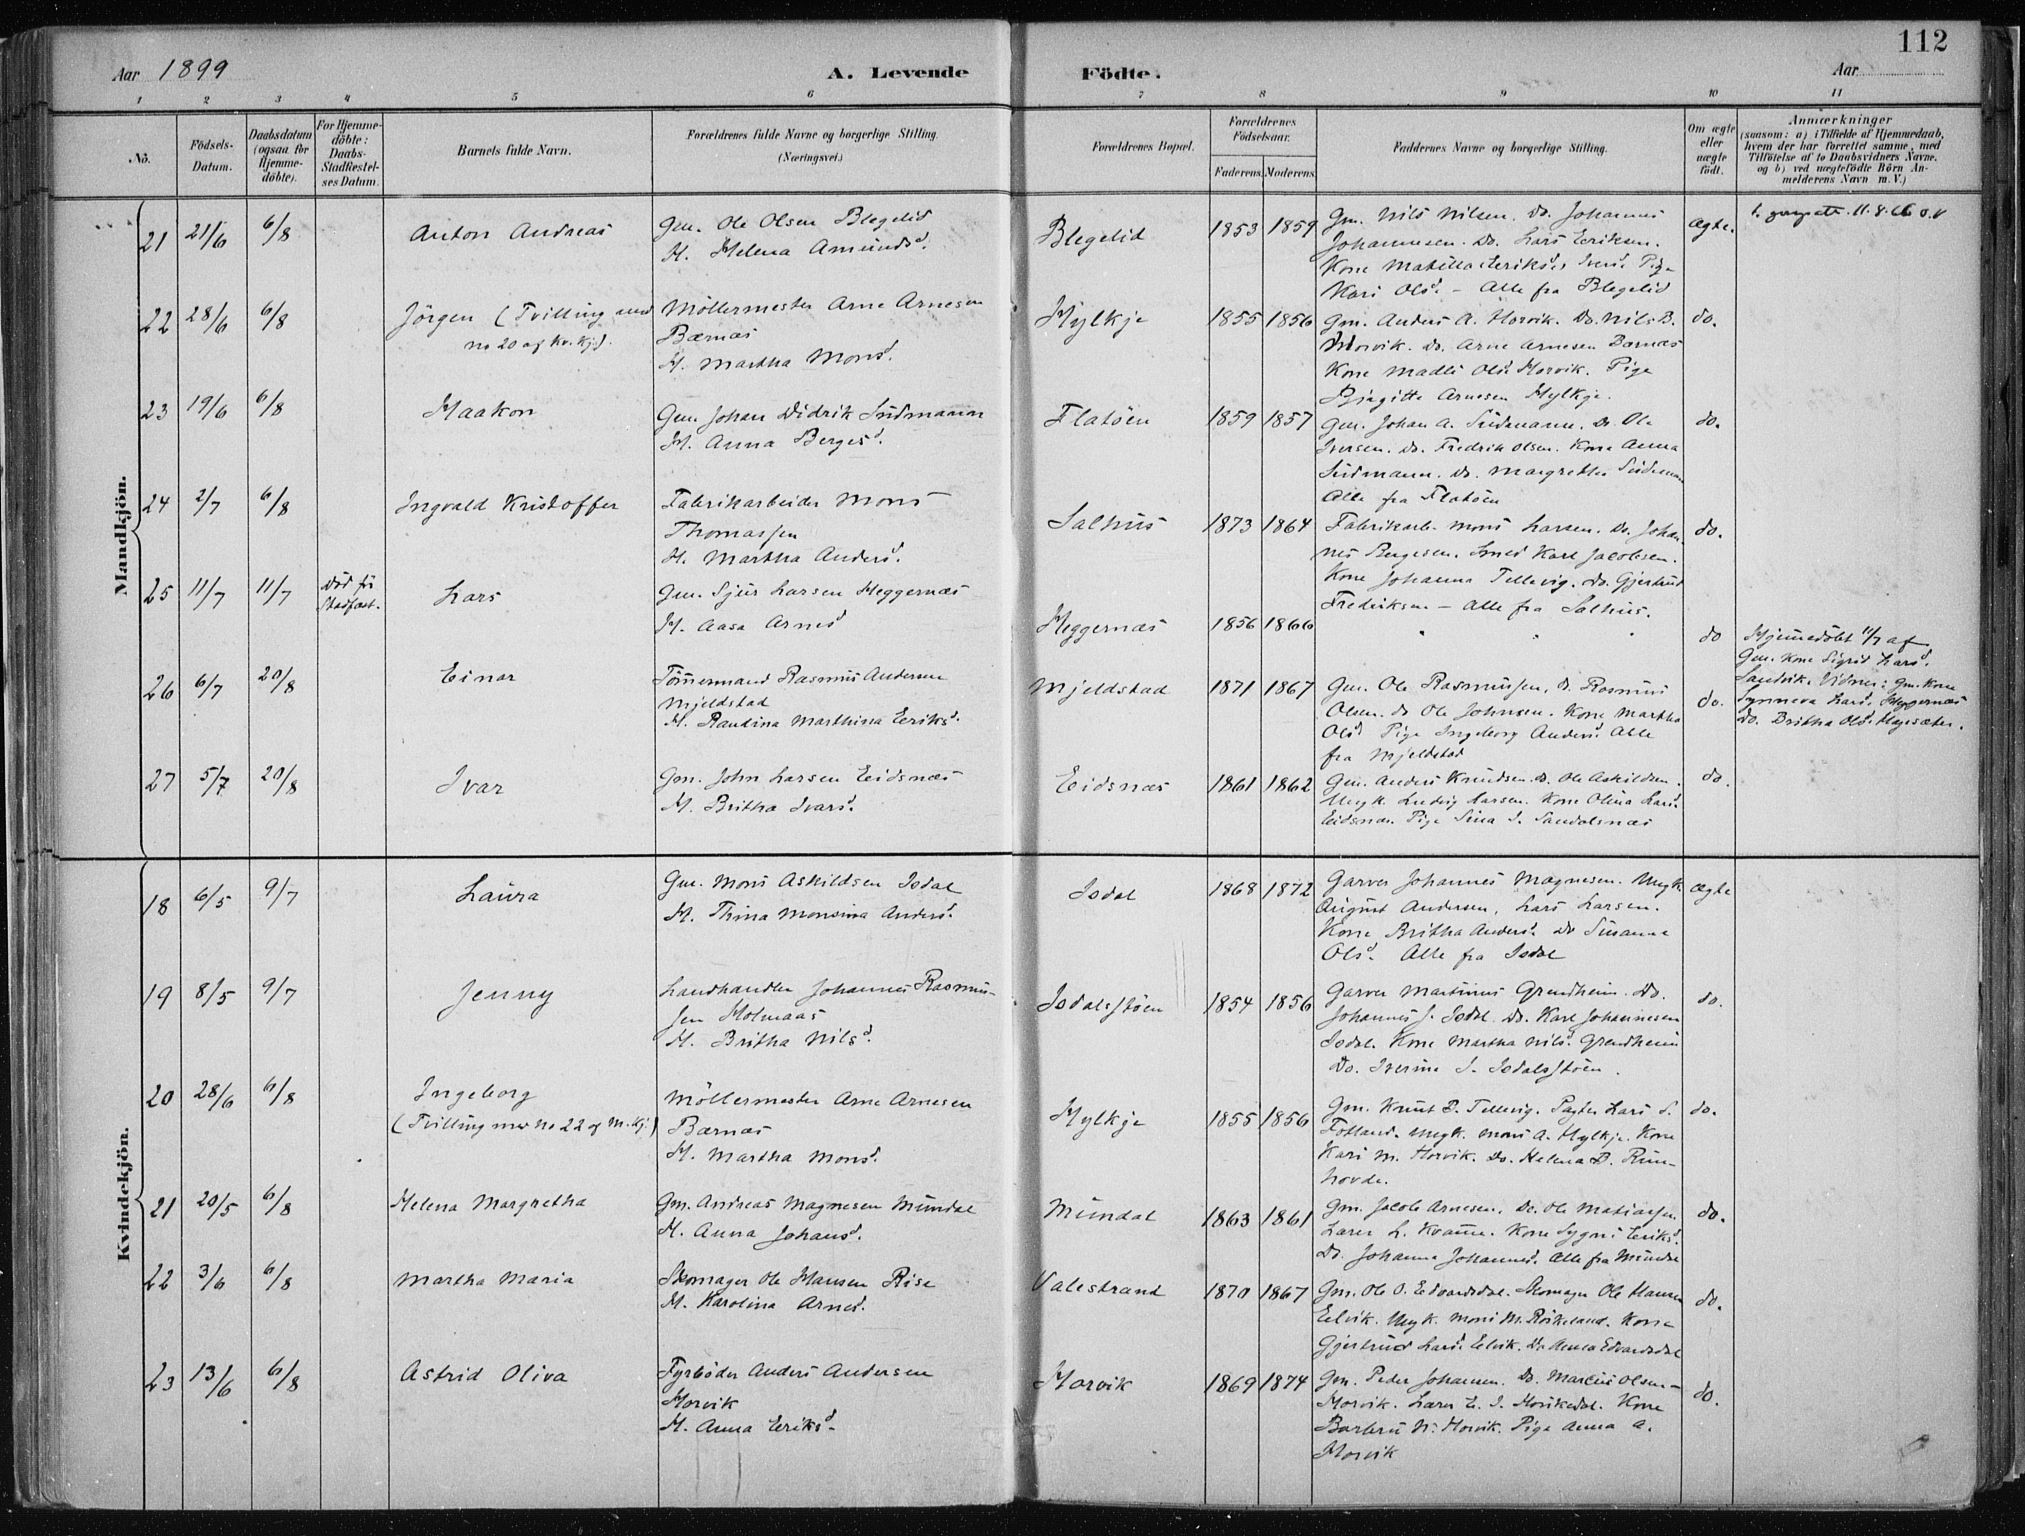 112
Aar 1899
A. Levende
Födte.
Aar
1 2 3 4 5 6 7 8 9 10 11
No.
Födsels-Datum.
Daabsdatum (ogsaa for Hjemme-döbte).
For Hjemme-döbte: Daabs-Stadfæstel-ses Datum.
Barnets fulde Navn.
Forældrenes fulde Navne og borgerlige Stilling. (Næringsvei.)
Forældrenes Bopæl.
Forældrenes Födselsaar.
Faderens. Moderens.
Faddernes Navne og borgerlige Stilling.
Om ægte eller uægte födt.
Anmærkninger
(saasom: a) i Tilfælde af Hjemmedaab, hvem der har forrettet samme, med Tilföielse af to Daabsvidners Navne. og b) ved uægtefödte Börn An-melderens Navn m. V.)
Mandkjön.
21 21/6 6/8 Anton Andreas
Gm. Ole Olsen Blegelid
H. Helena Amundsd.
Blegelid 1853 1859
Gm. Nils Nilsen. Do. Johannes
Johannesen. Do. Lars Eriksen.
Kone Matilla Eriksd. Pige
Kari Olsd. – Alle fra Blegelid
Ægte.
22 28/6 6/8 Jörgen (Tvilling med
no 20 af Kv. Kj.).
Möllermester Arne Arnesen
Bærnæs
H. Martha Monsd.
Hylkje 1855 1856
Gm. Anders A. Horvik. Do. Nils B.
Horvik. Do. Arne Arnesen Bærnæs
Kone Madli Olsd. Horvik. Pige
Birgitte Arnesen Hylkje.
do.
23 19/6 6/8 Haakon
Gm. Johan Didrik Südmann
H. Anna Bergesd.
Flatöen 1859 1857
Gm. Johan A. Südmann. Do. Ole
Iversen. Do. Fredrik Olsen. Kone Anna
Südmann. Do. Margrethe Südmann
Alle fra Flatöen
do.
24 2/7 6/8 Ingvald Kristoffer
Fabrikarbeider Mons
Thomassen
H. Martha Andersd.
Salhus 1873 1864
Fabrikarb. Mons Larsen. Do. Johan-
nes Bergesen. Smed Karl Jacobsen.
Kone Johanna Tellevig. Do. Gjertrud
Fredriksen – Alle fra Salhus.
do.
25 11/7 11/7 Död för
Stadfæst.
Lars
Gm. Sjur Larsen Heggernæs
H. Aasa Arnesd
Heggernæs 1856 1866
" " "
do
Hjemmedöbt 11/7 af
Gm. Kone Sigrid Larsd.
Sandvik. Vidner: Gm. Kone
Synneva Larsd. Heggernæs
do. Britha Olsd. Hagesæter.
26 6/7 20/8 Einar
Tömmermand Rasmus Andersen
Mjeldstad
H. Randina Marthina Eriksd.
Mjeldstad 1871 1867
Gm. Ole Rasmussen. Do. Rasmus
Olsen. Do Ole Johnsen. Kone Martha
Olsd Pige Ingeborg Andersd. Alle
fra Mjeldstad
do.
27 5/7 20/8 Ivar
Gm. John Larsen Eidsnæs
H. Britha Ivarsd.
Eidsnæs 1861 1862
Gm. Anders Knudsen. Do. Ole Askildsen.
Ungk. Ludvig Larsen. Kone Olina Larsd.
Eidsnæs. Pige Sina I. Sandalsnæs
do.
Kvindekjön.
18 6/5 9/7 Laura
Gm. Mons Askildsen Isdal
H. Thina Monsina Andersd.
Isdal 1868 1872
Garver Johannes Magnesen. Ungk
August Andersen, Lars Larsen.
Kone Britha Andersd. Do Susanne
Olsd. Alle fra Isdal
Ægte
19 8/5 9/7 Jenny
Landhandler Johannes Rasmus-
sen Holmaas
H. Britha Nilsd.
Isdalsstöen 1854 1856
Garver Martinus Grendheim. Do.
Johannes J. Isdal. Do. Karl Johannesen
Isdal. Kone Martha Nilsd. Grendheim
Do. Iverine I. Isdalsstöen.
do.
20 28/6 6/8 Ingeborg
(Tvilling med no 22 af M. Kj.)
Möllermester Arne Arnesen
Bærnæs
H. Martha Monsd.
Hylkje 1855 1856
Gm. Knut B. Tellevig. Pagter Lars S.
Totland. Ungk. Mons A. Hylkje. Kone
Kari M. Horvik. Do. Helena B. Run-
hovde.
do.
21 20/5 6/8 Helena Margretha
Gm. Andreas Magnesen Mundal
H. Anna Johansd.
Mundal 1863 1861
Gm. Jacob Arnesen. Do. Ole Matiassen
Lærer L. Kvamme. Kone Sygni Eriksd.
Do. Johanna Johannesd. Alle fra Mundal
do.
22 3/6 6/8 Martha Maria
Skomager Ole Hansen Rise
H. Karolina Arnesd.
Valestrand 1870 1867
Gm. Ole O. Edvardsdal. Skomager Ole Hansen
Eelvik. Ungk. Mons M. Röikeland. Kone
Gjertrud Larsd. Eelvik. Do Anna Edvardsdal
do.
23 13/6 6/8 Astrid Oliva
Fyrböder Anders Andersen
Horvik
H. Anna Eriksd.
Horvik 1869 1874
Gm. Peder Johansen. Do. Marcus Olsen –
Horvik. Lærer E. J. Horvikedal. Kone
Barbru N. Horvik. Pige Anna A.
Horvik
do.